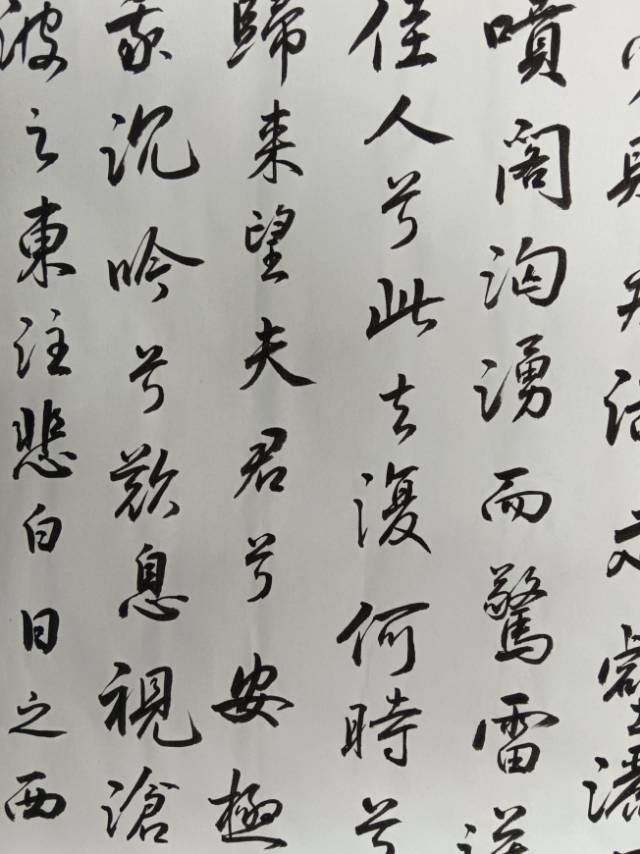 飛湍走壑灑
噴閣洶湧而驚雷送
佳人兮此去復何時兮
歸来望夫君兮安極
我沉吟兮歎息視滄
波之東注悲白日之西